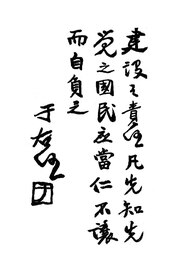 建設之責任凡先知先
覺之國民應當仁不讓
而自負之
于右任